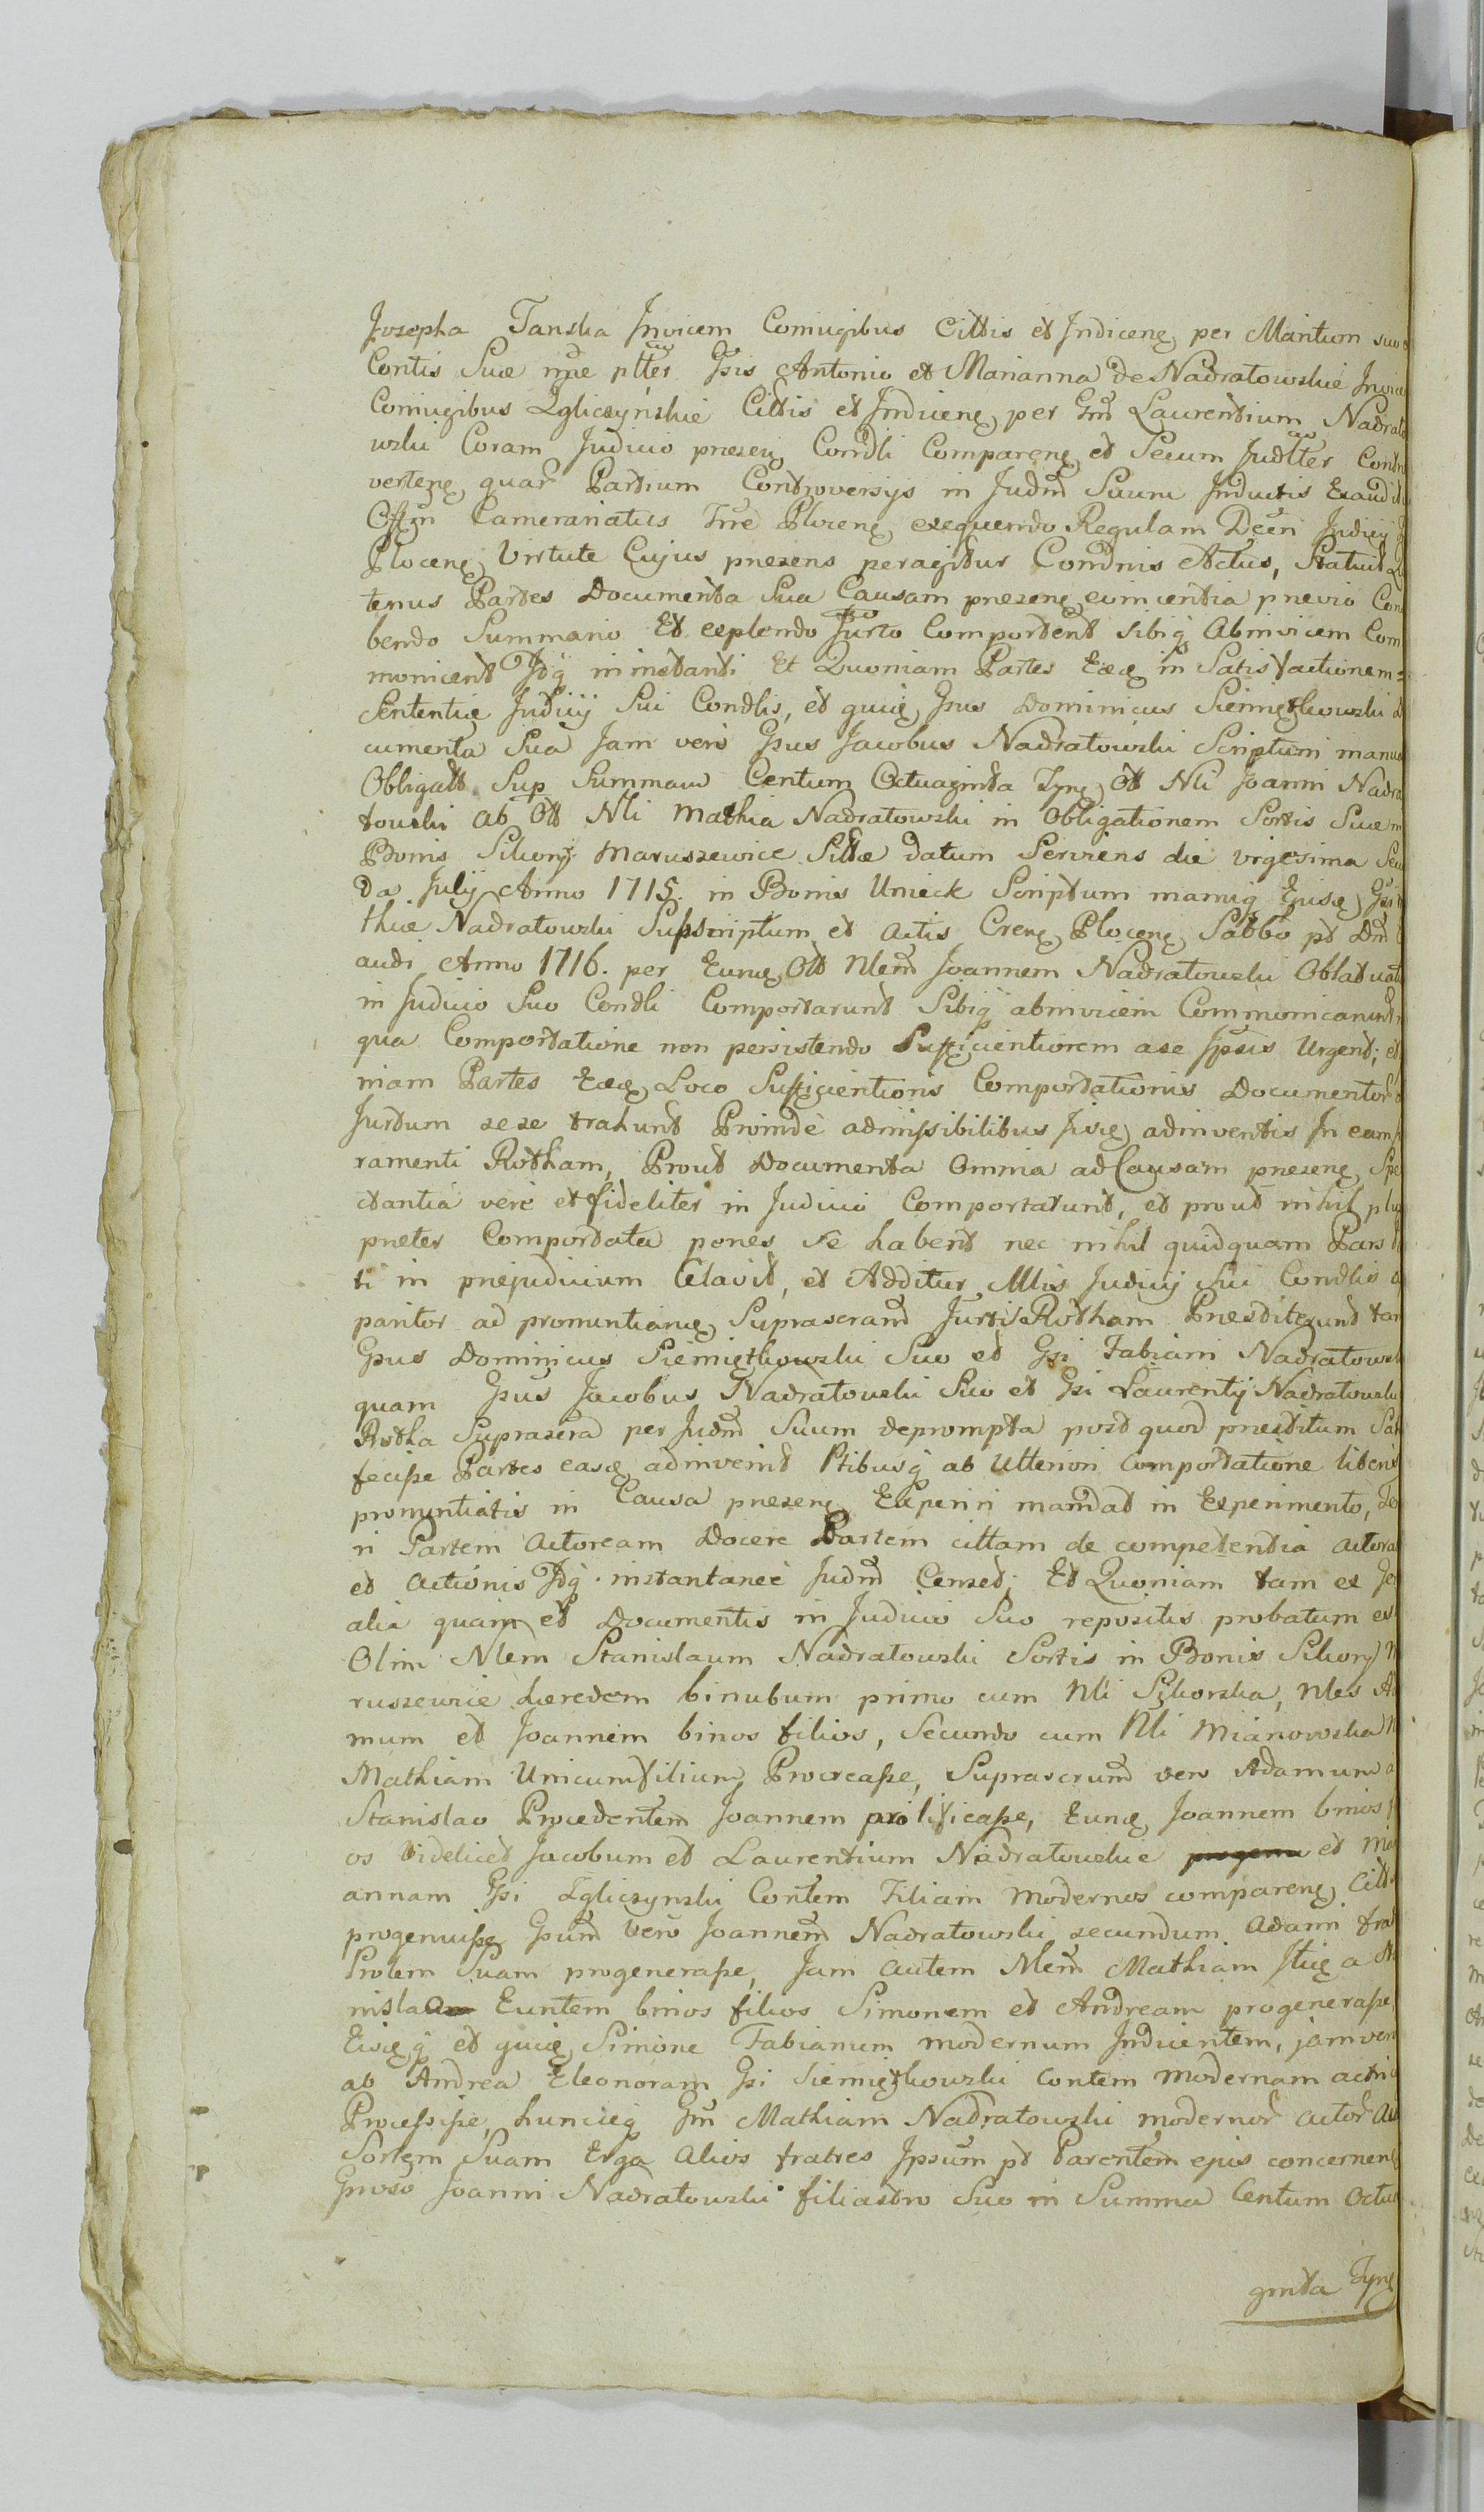 Josepha Tanska Invicem Coniugibus Cittis et Indicenę per Maritum suo
Contis Suæ nne ptter Gsis Antonio et Marianna de Nadratowskie Invice
Coniugibus Zgliczyńskie Cittis et Indicenę per Gm̃ Laurentium Nadrato
wski Coram Judicio præsenę Condli Comparenę et Secum Judtter Contro
vertenę quar̃ Partium Controversys in Judm̃ Suum Inductis Exaudit
Offm̃ Cameranatus Trre Plocenę exequendo Regulam Decri Judicij
Plocenę Virtute Cujus præsens peragitur Condnis Actus, Statuit
tenus Partes Documenta Sua Causam præsenę comcentia prævio Con
bendo Summario Et explendo Jurto Comportent sibiq Abinvicem Com
monicent Idq in instanti Et Quoniam Partes Eæę in Satisfactionem
Sententiæ Judicij Sui Condlis, et quiię Gsus Dominicus Siemiętkowski
cumenta Sua Jam vero Gsus Jacobus Nadratowski Scriptum manua
Obligatt Sup Summam Centum Octuaginta Tynę Ott Nli Joanni Nadra
towski ab Ott Nli Mathia Nadratowski in Obligationem Sortis Suæ
Bonis Sikory Maruszewice Sittæ datum Serviens die vigesima Secu
da Julij Anno 1715. in Bonis Unieck Scriptum manuq Ejusę Gsi
thiæ Nadratowski Subscriptum et Actis Crenę Plocenę Sabbo pt Dm̃
audi Anno 1716. per Eunę Ott Nlem̃ Joannem Nadratowski Oblatuat
in Judicio Suo Condli Comportarunt Sibiq abinvicem Communicarunt
qua Comportatione non persistendo Sufficientiorem a se Ipsis Urgent; et
niam Partes Eæę Loco Sufficientioris Comportationis Documentor
Jurtum sese trahunt Proinde admissibilibus Iisię adinventis In eam
ramenti Rotham, Prout Documenta Omnia ad Causam præsenę Spe
ctantia vere et fideliter in Judicio Comportarunt, et prout nihil plus
præter Comportata penes se habent nec nihil quidquam Pars
ti in præjudicium Celavit, et Additur Mlis Judicij Sui Condlis
paritor ad pronuntianę Suprascram̃ Jurti Rotham Præstiterunt tam
Gsus Dominicus Siemiętkowski Suo et Gsi Fabiani Nadratowsk
quam Gsus Jacobus Nadratowski Suo et Gsi Laurentij Nadratowski
Rotha Suprascra per Judm̃ Suum deprompta post quod præstitum Sat
fecisse Partes easę adinvenit Ptibusq ab Ulteriori Comportatione liberis
pronuntiatis in Causa præsenę Experiri mandat in Experimento,
ri Partem Actoream Docere Partem cittam de competentia actora
et Actionis Idq instantanee Judm̃ Censet; Et Quoniam tam ex
alia quam et Documentis in Judicio Suo repositis probatum es
Olim Nlem Stanislaum Nadratowski Sortis in Bonis Sikory
ruszewice hæredem binubum primo cum Nli Sikorska, Nles
mum et Joannem binos filios, Secundo cum Nli Mianowska
Mathiam Unicum filium Procreasse, Suprascrum̃ vero Adamum
Stanislao Procedentem Joannem prolificasse, Eunę Joannem binos
os Videlicet Jacobum et Laurentium Nadratowskie et
annam Gsi Zgliczynski Contem Filiam modernos comparenę Citt
progenuisse Gsum̃ Vero Joannem̃ Nadratowski secundum Adami
Prolem Suam progenerasse, Jam autem Nlem̃ Mathiam Ituę a
nislao Euntem binos filios Simonem et Andream progenerasse
Eisęq et quię Simone Fabianum modernum Indicentem, jam vero
ab Andrea Eleonoram Gsi Siemiętkowski Contem modernam actri
Processisse, huncięq Gm̃ Mathiam Nadratowski modernor actor
Sortem Suam Erga Alios fratres Ipsum pt Parentem ejus concernen
Gnoso Joanni Nadratowski filiastro Suo in Summa Centum Octua
ginta Tynę